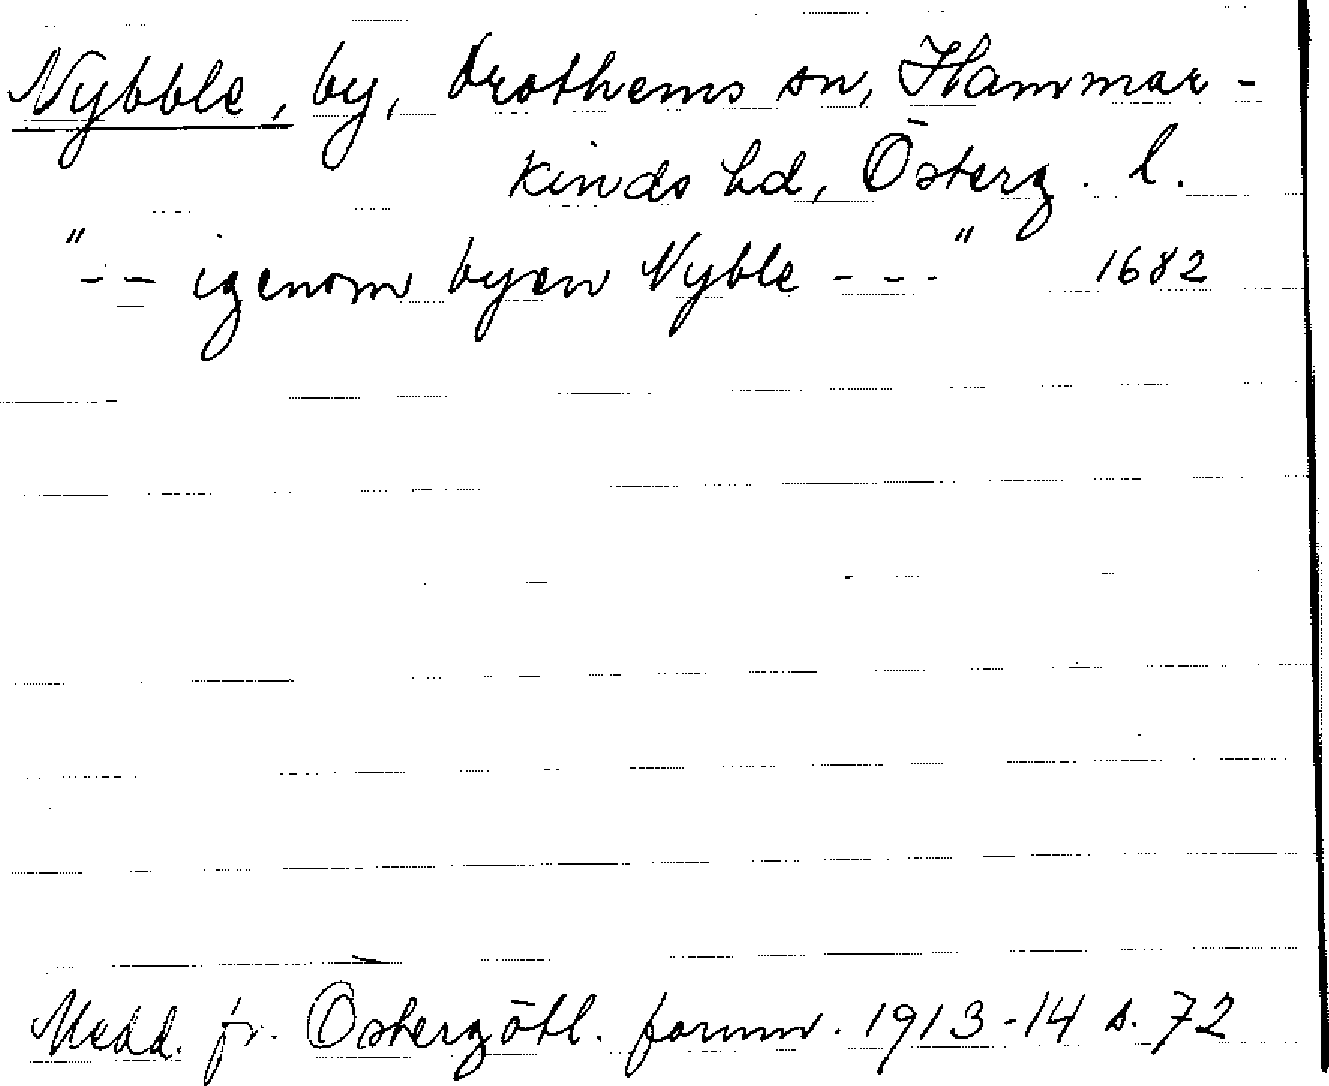 Nybble, by, Drothems sn, Hammar-
kinds hd, Österg. l.
"-- igenom byen Nyble ---" 1682
Medd. fr. Östergötl. fornm. 1913-14 s. 72